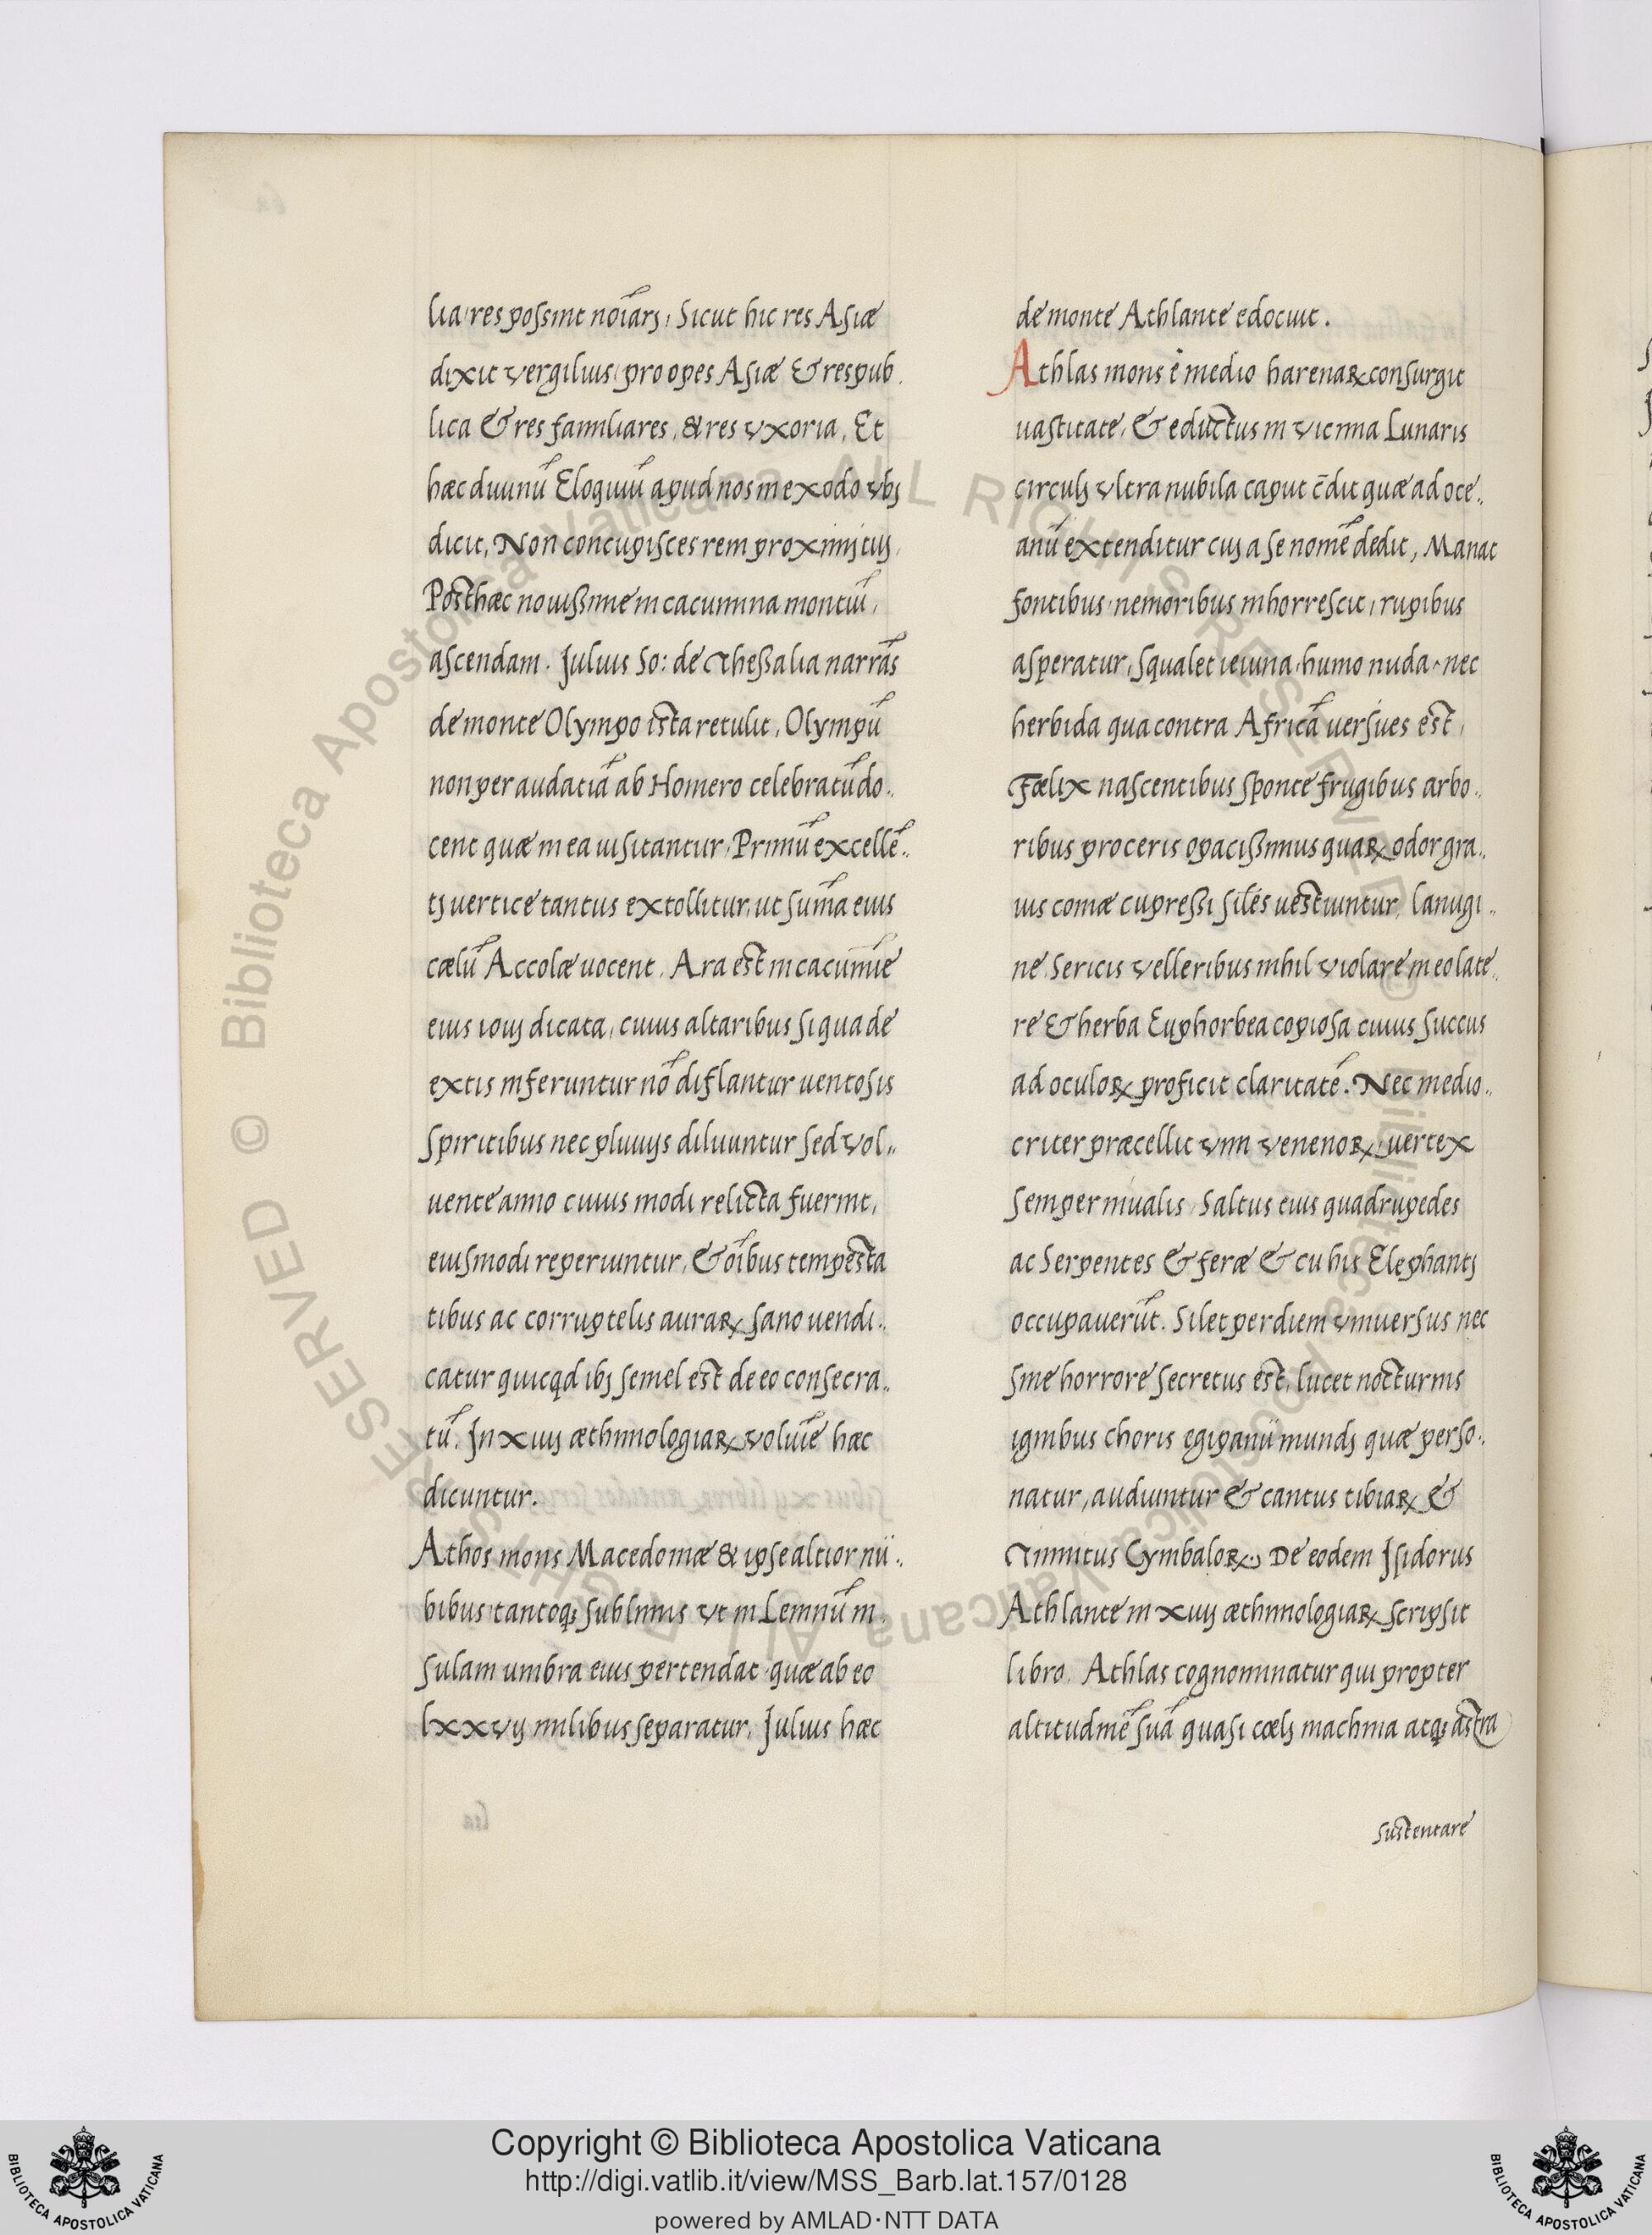 lia res possint noīarj, Sicut hic res Asiæ
dixit Vergilius pro opes Asiæ & respub
lica & res familiares, & res Vxoria, Et
hæc duunū Eloquiū apud nos in exodo Vbj
dicit, Non concupisces rem proximj tuj,
Posthæc nouißime in cacumina montiū,
ascendam. Julius So: de Theßalia narrās
de monte Olympo ista retulit, Olympū
non per audatiā ab Homero celebratū do„
cent quæ in ea uisitantur, Primū excellē„
tj uertice tantus extollitur, ut sum̄a eius
cælū Accolæ uocent. Ara est in cacumīe
eius iouj dicata, cuius altaribus si qua de
extis inferuntur nō diflantur uentosis
spiritibus nec pluuijs diluuntur sed Vol„
uente anno cuius modi relicta fuerint,
eiusmodi reperiuntur, & oībus tempesta
tibus ac corruptelis auraꝝ sano uendi„
catur quicqd ibj semel est de eo consecra„
tū. Jn xiiij æthimologiaꝝ Voluīe hæc
dicuntur.
Athos mons Macedoniæ & ipse altior nu„
bibus tantoq; sublimis Vt in Lemnū in„
sulam umbra eius pertendat quæ ab eo
lxxVij milibus separatur, Julius hæc
de monte Athlante edocuit.
Athlas mons é medio harenaꝝ consurgit
uastitate, & eductus in Vicina Lunaris
circulj Vltra nubila caput c̄dit quæ ad oce„
anū extenditur cuj a se nomē dedit, Manat
fontibus nemoribus inhorrescit, rupibus
asperatur, squalet ieiuna humo nuda nec
herbida qua contra Africā uersues est,
Fœlix nascentibus sponte frugibus arbo„
ribus proceris opacißimus quaꝝ odor gra„
uis comæ cupreßi sil̄es uestiuntur, lanugi„
ne Sericis Velleribus nihil Violare in eo late„
re & herba Euphorbea copiosa cuius succus
ad oculoꝝ proficit claritatē. Nec medio„
criter præcellit Vim Venenoꝝ, uertex
semper niualis, Saltus eius quadrupedes
ac Serpentes & feræ & cu his Elephantj
occupauerūt. Silet per diem Vniuersus nec
sine horrore secretus est, lucet nocturnis
ignibus choris egipanū mundj quæ perso„
natur, audiuntur & cantus tibiaꝝ &
Tinnitus Cymbaloꝝ. De eodem Jsidorus
Athlante in xiiij æthimologiaꝝ scripsit
libro. Athlas cognominatur qui propter
altitudinē suā quasi cœlj machina atq; astra
sustentare
Copyright © Biblioteca Apostolica Vaticana
http://digi.vatlib.it/view/MSS_Barb.lat.157/0128
powered by AMLAD·NTT DATA